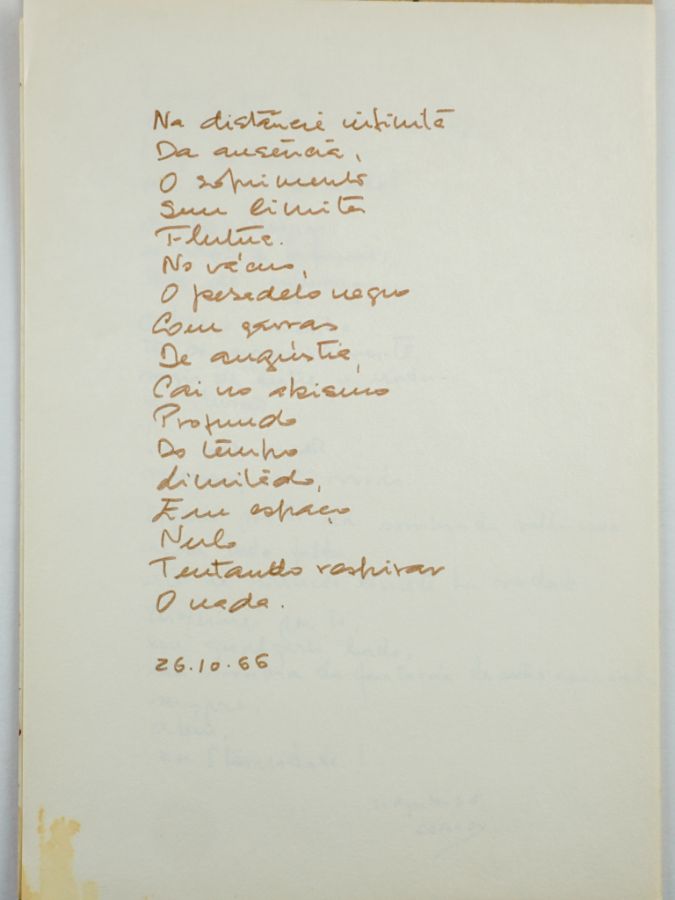 Na distância infinita
Da ausência,
O sofrimento
Sem limites
Flutua.
No vácuo,
O pesadelo negro
Com garras
De angústia,
Cai no abismo
Profundo
Do tempo
limitado,
Em espaço
Nulo
Tentando respirar
O nada.
26.10.66